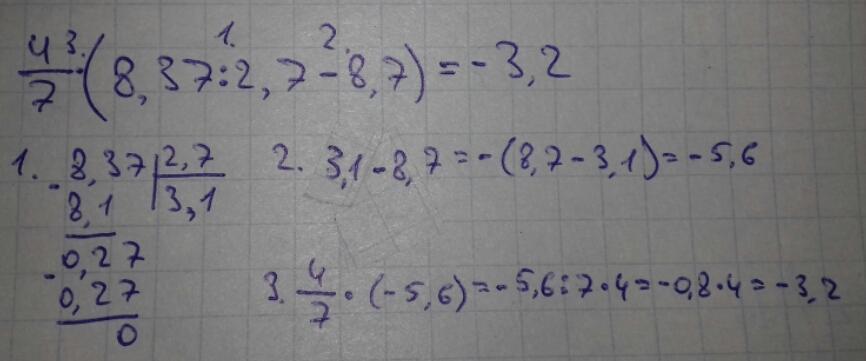 1. 2.
4/7 3. · (8,37:2,7-8,7)=-3,2
1. 8,37 | 2,7
- 8,1 | 3,1
- 0,27
0,27
0
2. 3,1-8,7=-(8,7-3,1)=-5,6
3. 4/7 · (-5,6)=-5,6:7·4=-0,8·4=-3,2